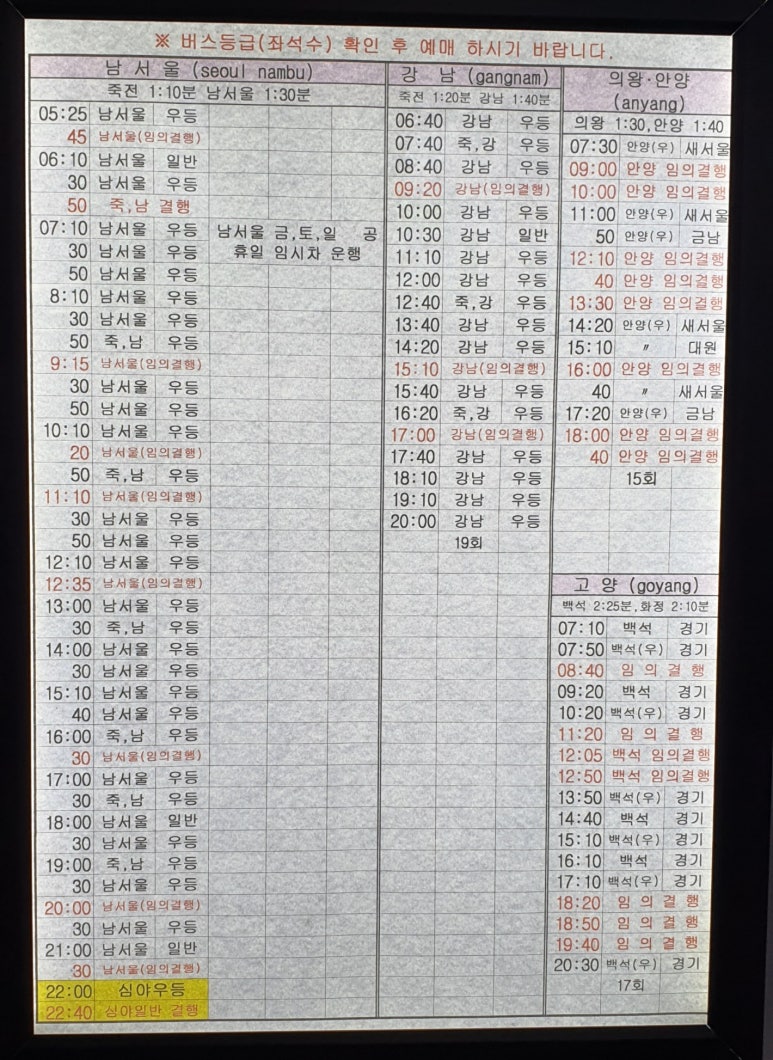 ※ 버스등급(좌석수) 확인 후 예매 하시기 바랍니다.
남 서 울 (seoul nambu)
죽전 1:10분 남서울 1:30분
05:25 남서울 우등
45 남서울(임의결행)
06:10 남서울 일반
30 남서울 우등
50 죽,남 결행
07:10 남서울 우등 남서울 금,토,일 공
30 남서울 우등 휴일 임시차 운행
50 남서울 우등
8:10 남서울 우등
30 남서울 우등
50 죽,남 우등
9:15 남서울(임의결행)
30 남서울 우등
50 남서울 우등
10:10 남서울 우등
20 남서울(임의결행)
50 죽,남 우등
11:10 남서울(임의결행)
30 남서울 우등
50 남서울 우등
12:10 남서울 우등
12:35 남서울(임의결행)
13:00 남서울 우등
30 죽,남 우등
14:00 남서울 우등
30 남서울 우등
15:10 남서울 우등
40 남서울 우등
16:00 죽,남 우등
30 남서울(임의결행)
17:00 남서울 우등
30 죽,남 우등
18:00 남서울 일반
30 남서울 우등
19:00 죽,남 우등
30 남서울 우등
20:00 남서울(임의결행)
30 남서울 우등
21:00 남서울 일반
30 남서울(임의결행)
22:00 심야우등
22:40 심야일반 결행
강 남 (gangnam)
죽전 1:20분 강남 1:40분
06:40 강남 우등
07:40 죽,강 우등
08:40 강남 우등
09:20 강남(임의결행)
10:00 강남 우등
10:30 강남 일반
11:10 강남 우등
12:00 강남 우등
12:40 죽,강 우등
13:40 강남 우등
14:20 강남 우등
15:10 강남(임의결행)
15:40 강남 우등
16:20 죽,강 우등
17:00 강남(임의결행)
17:40 강남 우등
18:10 강남 우등
19:10 강남 우등
20:00 강남 우등
19회
의왕·안양
(anyang)
의왕 1:30,안양 1:40
07:30 안양(우) 새서울
09:00 안양 임의결행
10:00 안양 임의결행
11:00 안양(우) 새서울
50 안양(우) 금남
12:10 안양 임의결행
40 안양 임의결행
13:30 안양 임의결행
14:20 안양(우) 새서울
15:10 〃 대원
16:00 안양 임의결행
40 〃 새서울
17:20 안양(우) 금남
18:00 안양 임의결행
40 안양 임의결행
15회
고 양 (goyang)
백석 2:25분,화정 2:10분
07:10 백석 경기
07:50 백석(우) 경기
08:40 임 의 결 행
09:20 백석 경기
10:20 백석(우) 경기
11:20 임 의 결 행
12:05 백석 임의결행
12:50 백석 임의결행
13:50 백석(우) 경기
14:40 백석 경기
15:10 백석(우) 경기
16:10 백석 경기
17:10 백석(우) 경기
18:20 임 의 결 행
18:50 임 의 결 행
19:40 임 의 결 행
20:30 백석(우) 경기
17회